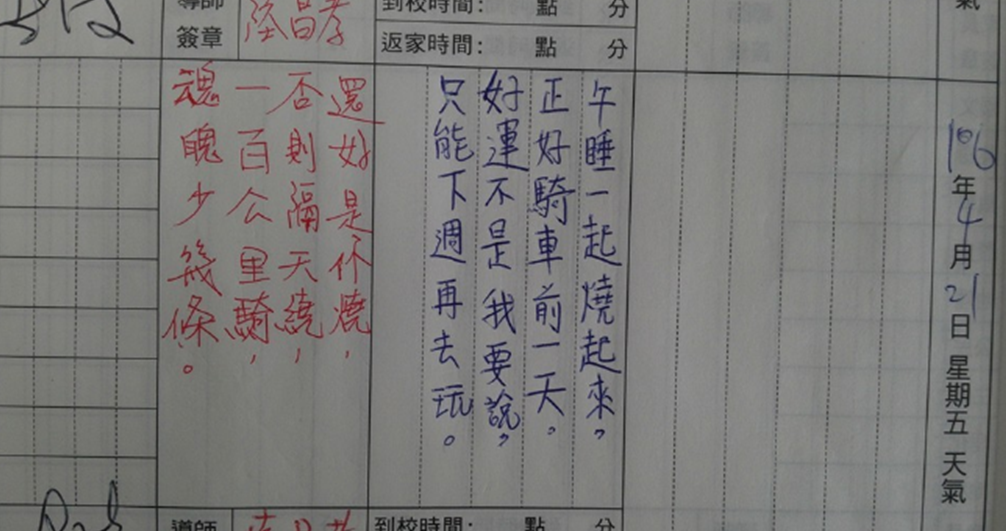 氣
106年4月21日 星期五 天氣
到校時間： 點 分
返家時間： 點 分
午睡一起燒起來，
正好騎車前一天。
好運不是我要說，
只能下週再去玩。
導師
簽章
還好是你燒，
否則隔天繞，
一百公里騎，
魂魄少幾條。
到校時間： 點 分
導師